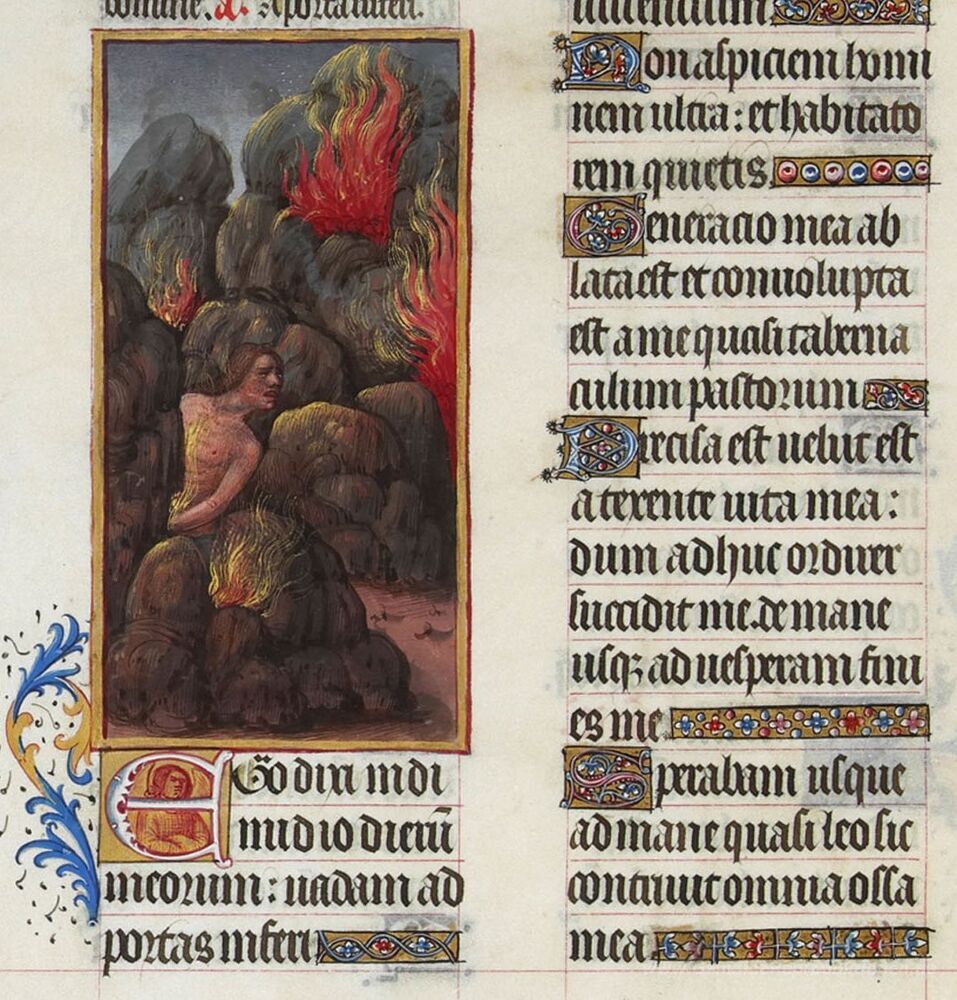 domine. a. A porta inferi.
Ego dixi in di
midio dierū
meorum: uadam ad
portas inferi
uiuencium
Non aspiciem homi
nem ultra: et habitato
rem quietis.
Generacio mea ab
lata est et conuoluta
est a me quasi taberna
culum pastorum
Precisa est uelut est
a texente uita mea:
dum adhuc ordirer
succidit me. de mane
usqꝫ ad uesperam fini
es me
Sperabam usque
ad mane quasi leo sic
contriuit omnia ossa
mea